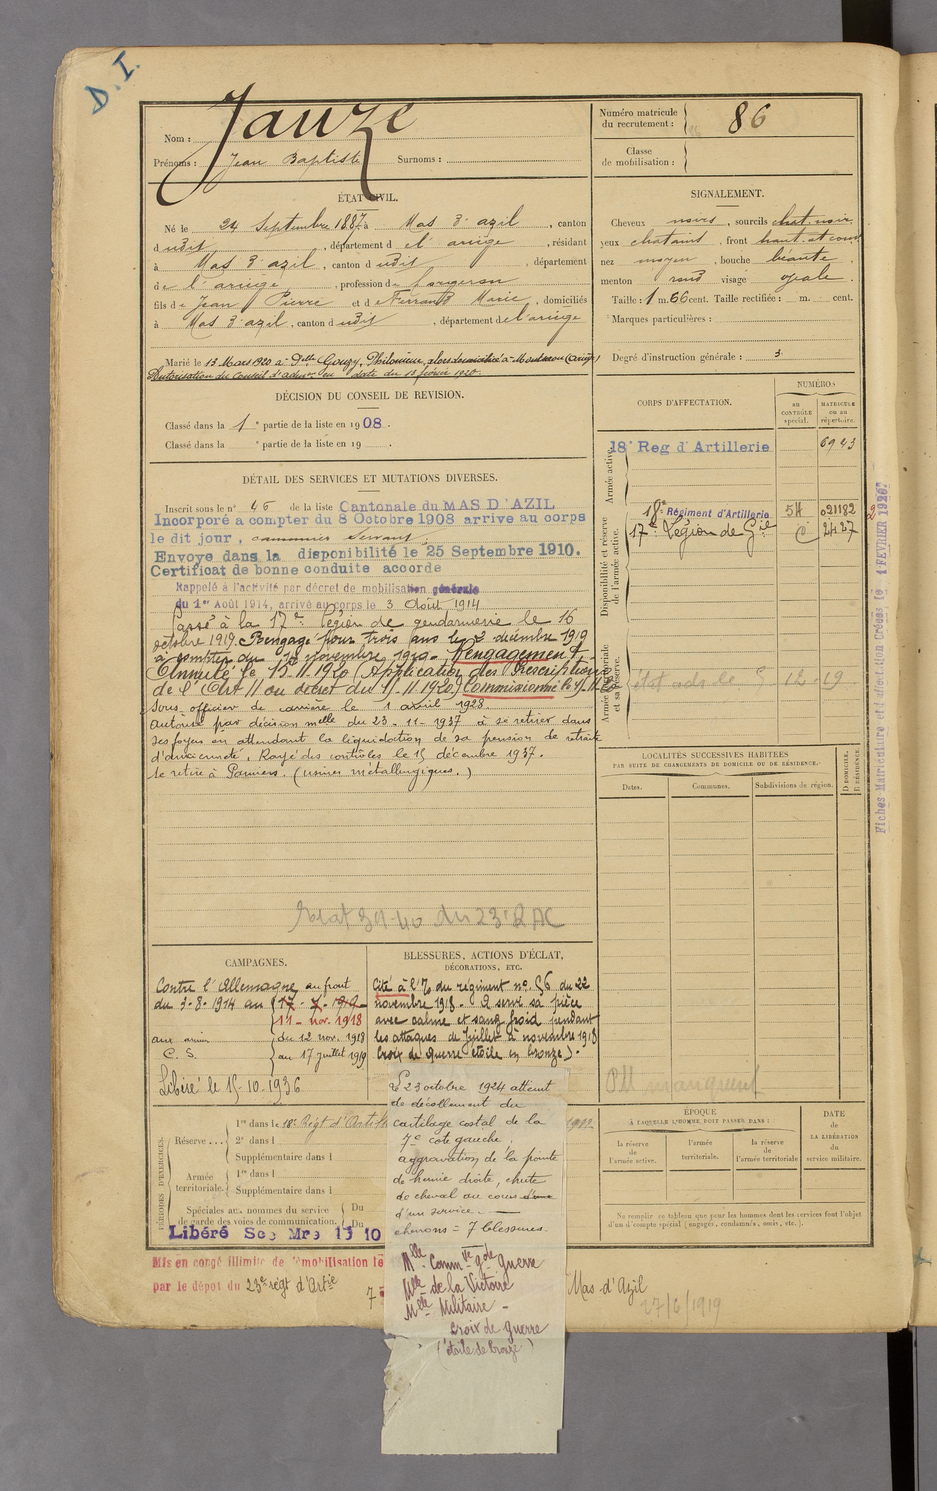 D. I.
Nom : Jauze
Prénoms : Jean Baptiste Surnoms :
Numéro matricule du recrutement : 86
Classe de mobilisation :
ÉTAT CIVIL.
Né le 24 Septembre 1887, à Mas d'azil, canton
dudit, département de l'ariège, résidant
à Mas d'azil, canton dudit, département
de l'ariège, profession de forgeron
fils de Jean Pierre et de Ferrand Marie, domiciliés
à Mas d'azil, canton dudit, département de l'ariège
Marié le 13 Mars 1920 à Dlle Gouzy, Philomène, alors domiciliée à (Ariège)
Autorisation du Conseil d'admon en date du 12 février 1920.
SIGNALEMENT.
Cheveux noirs, sourcils chat. noir
yeux chatains, front haut et
nez moyen, bouche béante
menton rond visage ovale
Taille : 1 m. 66 cent. Taille rectifiée : m. cent.
Marques particulières :
Degré d'instruction générale : 3
DÉCISION DU CONSEIL DE REVISION.
Classé dans la 1e partie de la liste en 1908.
Classé dans la e partie de la liste en 19 .
DÉTAIL DES SERVICES ET MUTATIONS DIVERSES.
Inscrit sous le n° 46 de la liste Cantonale du MAS D'AZIL
Incorporé a compter du 8 Octobre 1908 arrive au corps
le dit jour, canonnier servant,
Envoye dans la disponibilité le 25 Septembre 1910.
Certificat de bonne conduite accorde
Rappelé à l'activité par décret de mobilisation générale
du 1er Août 1914, arrivé au corps le 3 Août 1914
Passé à la 17e Légion de gendarmerie le 16
octobre 1919. Rengagé pour trois ans le 2 décembre 1919
à compter du novembre 1919. Rengagement
Annulé le 15.11.1920 (Application des Prescriptions
de l'Art 11 du décret du 5-11-1920) Commissionné le
Sous officier de carrière le 1 avril 1928
Autorisé par décision mlle du 23-11-1937 à se retirer dans
ses foyers en attendant la liquidation de sa pension de retraite
d'ancienneté. Rayé des contrôles le 15 décembre 1937.
Se retire à Pamiers. (usines métallurgiques.)
CORPS D'AFFECTATION.
NUMÉROS
au contrôle spécial.
matricule ou au répertoire.
Armée active.
18e Reg d'Artillerie 6943
Disponibilité et réserve de l'armée active.
18e Régiment d'Artillerie 54 021182
17e Légion de Gie C 2427
Armée territoriale et sa réserve.
LOCALITÉS SUCCESSIVES HABITÉES
PAR SUITE DE CHANGEMENTS DE DOMICILE OU DE RÉSIDENCE.
Dates. Communes. Subdivisions de région. D DOMICILE. R RÉSIDENCE.
Fiches Matriculaire et d'affectation Créées le 1 FEVRIER 1926
CAMPAGNES.
Contre l'Allemagne au front
du 3-8-1914 au 17-7-1919
11 nov. 1918
aux armées du 12 nov. 1918
C. S. au 17 juillet 1919
Libéré le 15-10-1936
BLESSURES, ACTIONS D'ÉCLAT,
DÉCORATIONS, ETC.
Cité à l'O/ du régiment n° 56 du 22
novembre 1918. A servi sa pièce
avec calme et sang froid pendant
les attaques de Juillet à novembre 1918
Croix de guerre étoile en bronze).
Le 23 octobre 1924 atteint
de décollement du
cartilage costal de la
7e côte gauche,
aggravation de la pointe
de hernie droite, chute
de cheval au cours
d'un service.
chevrons = 7 blessures.
Mlle Commve gde Guerre
Mlle de la Victoire
Mlle Militaire
Croix de guerre
(étoile de bronze)
PÉRIODES D'EXERCICES.
Réserve... 1re dans le 18e Régt d'Art
2e dans l
Supplémentaire dans l
Armée territoriale. 1re dans l
Supplémentaire dans l
Spéciales aux hommes du service de garde des voies de communication. Du
Du
ÉPOQUE
À LAQUELLE L'HOMME DOIT PASSER DANS :
la réserve de l'armée active.
l'armée territoriale.
la réserve de l'armée territoriale
DATE DE LA LIBÉRATION du service militaire.
Ne remplir ce tableau que pour les hommes dont les services font l'objet
d'un décompte spécial (engagés, condamnés, omis, etc.).
Mis en congé illimité de démobilisation le
par le dépot du 23e régt d'Artie
Mas d'Azil
27/6/1919